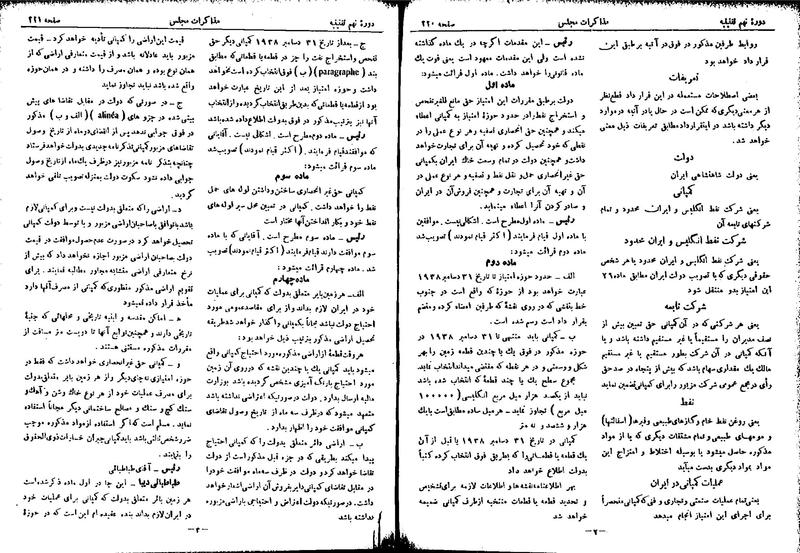 دوره نهم تقنینیه
مذاکرات مجلس
صفحه ۲۲۰
روابط طرفین مذکور در فوق در آتیه بر طبق این
قرار داد خواهد بود
تعریفات
بعضی اصطلاحات مستعمله در این قرار داد قطع‌نظر
از هر معنی دیگری که ممکن است در حال یا در آتیه در موارد
دیگر داشته باشد در این قرارداد مطابق تعریفات ذیل معنی
خواهد شد.
دولت
یعنی دولت شاهنشاهی ایران
کمپانی
یعنی شرکت نفط انگلیس و ایران محدود و تمام
شرکتهای تابعه آن
شرکت نفط انگلیس و ایران محدود
یعنی شرکت نفط انگلیس و ایران محدود یا هر شخص
حقوقی دیگری که با تصویب دولت ایران مطابق ماده ۲۶
این امتیاز بدو منتقل شود
شرکت تابعه
یعنی هر شرکتی که در آن کمپانی حق تعیین بیش از
نصف مدیران را مستقیماً یا غیر مستقیم داشته باشد و یا
آنکه کمپانی در آن شرکت بطور مستقیم یا غیر مستقیم
مالک یک مقداری سهام باشد که بیش از پنجاه در صد حق
رأی در مجمع عمومی شرکت مزبور را برای کمپانی تضمین نماید
نفط
یعنی روغن نفط خام و گازهای طبیعی و قیرها (اسفالتها)
و مومهای طبیعی و تمام مشتقات دیگری که یا از مواد
مذکوره حاصل میشود یا بوسیله اختلاط و امتزاج این
مواد بمواد دیگری بدست میآید
عملیات کمپانی در ایران
یعنی تمام عملیات صنعتی و تجاری و فنی که کمپانی منحصراً
برای اجرای این امتیاز انجام میدهد
رئیس - این مقدمات اگرچه در یك ماده گذاشته
نشده است ولی این مقدمات معهود است یعنی فوت یك
ماده قانونی را خواهد داشت. ماده اول قرائت میشود:
ماده اول
دولت بر طبق مقررات این امتیاز حق مانع للغیر تفحص
و استخراج نفط را در حدود حوزه امتیاز به کمپانی اعطاء
میکند و همچنین حق انحصاری تصفیه و هر نوع عملی را در
نفطی که خود تحصیل کرده و تهیه آن برای تجارت خواهد
داشت و همچنین دولت در تمام وسعت خاك ایران بکمپانی
حق غیر انحصاری حمل و نقل نفط و تصفیه و هر نوع عملی در
آن و تهیه آن برای تجارت و همچنین فروش آن در ایران
و صادر کردن آنرا اعطاء مینماید.
رئیس - ماده اول مطرح است. اشکالی نیست. موافقین
با ماده اول قیام فرمایند (اکثر قیام نمودند) تصویب شد
ماده دوم قرائت میشود:
ماده دوم
الف - حدود حوزه امتیاز تا تاریخ ۳۱ دسامبر ۱۹۳۸
عبارت خواهد بود از حوزهٔ که واقع است در جنوب
خط بنفشی که در روی نقشهٔ که طرفین امضاء کرده و منضم
بقرار داد است رسم شده است.
ب - کمپانی باید منتهی تا ۳۱ دسامبر ۱۹۳۸ در
حوزه مذکور در فوق یك یا چندین قطعه زمین را بهر
شکل و وسعتی و در هر نقطه که مقتضی میداند انتخاب نماید.
مجموع سطح یك یا چند قطعهٔ که انتخاب شده باشد
نباید از یکصد هزار میل مربع انگلیسی (۱۰۰۰۰۰
میل مربع) تجاوز نماید - هر میل ساده مطابق است با یك
هزار و ششصد و نه متر
کمپانی در تاریخ ۳۱ دسامبر ۱۹۳۸ یا قبل از آن
یك یا قطعاتی را که بطریق فوق انتخاب کرده کتباً
بدولت اطلاع خواهد داد
بهر اطلاعنامه نقشه‌ها و اطلاعات لازمه برای تشخیص
و تحدید قطعه یا قطعات منتخبه از طرف کمپانی ضمیمه
خواهد شد
-۲-
دوره نهم تقنینیه
مذاکرات مجلس
صفحه ۲۲۱
ج - بعد از تاریخ ۳۱ دسامبر ۱۹۳۸ کمپانی دیگر حق
تفحص و استخراج نفت را جز در قطعه یا قطعاتی که مطابق
بند (paragraphe) (ب) فوق انتخاب کرده است نخواهد
داشت و حوزه امتیاز بعد از این تاریخ عبارت خواهد
بود از قطعه یا قطعاتی که بدین طریق انتخاب گردیده و از انتخاب
آنها نیز بترتیب مذکور در فوق بدولت اطلاع داده شده باشد
رئیس - ماده دوم مطرح است. اشکالی نیست. آقایانی
که موافقند قیام فرمایند. (اکثر قیام نمودند) تصویب شد
ماده سوم قرائت میشود:
ماده سوم
کمپانی حق غیر انحصاری ساختن و داشتن لوله های حمل
نفط را خواهد داشت. کمپانی در تعیین محل سیر لوله های
نفط خود و بکار انداختن آنها مختار است
رئیس - ماده سوم مطرح است. آقایانی که با ماده
سوم موافقت دارند قیام فرمایند (اکثر قیام کردند) تصویب
شد. ماده چهارم قرائت میشود:
ماده چهارم
الف - هر زمین بایر متعلق بدولت که کمپانی برای عملیات
خود در ایران لازم بداند و از برای مقاصد عمومی مورد
احتیاج دولت نباشد مجاناً بکمپانی واگذار خواهد شد طریقه
تحصیل اراضی مذکور بترتیب ذیل خواهد بود:
هر وقت قطعهٔ از اراضی مذکوره مورد احتیاج کمپانی واقع
میشود باید کمپانی یك یا چندین نقشه که در روی آن زمین
مورد احتیاج با رنگ آمیزی مشخص گردیده باشد بوزارت
مالیه ارسال بدارد. دولت در صورتیکه اعتراضی نداشته باشد
متعهد میشود که در ظرف سه ماه از تاریخ وصول تقاضای
کمپانی موافقت خود را اظهار بدارد.
ب - اراضی دائر متعلق بدولت را که کمپانی احتیاج
پیدا میکند بطریقی که در جزء قبل مذکور است از دولت
تقاضا خواهد کرد و دولت در ظرف سه ماه موافقت خود را
در مقابل تقاضای کمپانی دایر بفروش آن اراضی اشعار خواهد
داشت. در صورتیکه دولت اعتراض و احتیاجی باراضی مزبوره
نداشته باشد
قیمت این اراضی را کمپانی تأدیه خواهد کرد - قیمت
مزبور باید عادلانه باشد و از قیمت متعارفی اراضی که از
همان نوع بوده و همان مصرف را داشته و در همان حوزه
واقع شده باشد نباید تجاوز نماید
ج - در صورتی که دولت در مقابل تقاضا های پیش
بینی شده در جزو های (alinéa) (الف و ب) مذکور
در فوق جوابی ندهد پس از انقضای دو ماه از تاریخ وصول
تقاضاهای مزبور کمپانی تذکر نامهٔ جدیدی بدولت خواهد فرستاد
چنانچه بتذکر نامه مزبور نیز در ظرف یك ماه از تاریخ وصول
جوابی داده نشود سکوت دولت بمنزله تصویب تلقی خواهد
گردید.
د - اراضی را که متعلق بدولت نیست و برای کمپانی لازم
باشد با توافق با صاحبان اراضی مزبور و یا توسط دولت کمپانی
تحصیل خواهد کرد در صورت عدم حصول موافقت در قیمت
دولت بصاحبان اراضی مزبور اجازه نخواهد داد که بیش از
نرخ متعارفی اراضی مشابه مجاور مطالبه نمایند. برای
تقویم اراضی مذکور منظوری که کمپانی از مصرف آنها دارد
مأخذ قرار داده نمیشود
ه - اماکن مقدسه و ابنیه تاریخی و محلهائی که جنبهٔ
تاریخی دارند و همچنین توابع آنها تا دویست متر مسافت از
مقررات مذکوره مستثنی هستند.
و - کمپانی حق غیر انحصاری خواهد داشت که فقط در
حوزه امتیازی نه جای دیگر از هر زمین بایر متعلق بدولت
برای مصرف عملیات خود از هر نوع خاك و شن و آهك و
سنگ گچ و سنگ و مصالح ساختمانی دیگر مجاناً استفاده
نماید. مسلم است که اگر استفاده از مواد مذکوره موجب
ضرر شخص ثالثی باشد باید کمپانی جبران خسارات ذوی الحقوق
را بنماید.
رئیس - آقای طباطبائی
طباطبائی دیبا - این جا در اول ماده ذکر شده است
هر زمین بائر متعلق بدولت که کمپانی برای عملیات خود
در ایران لازم بداند بنده عقیده ام این است که در حوزهٔ
-۳-